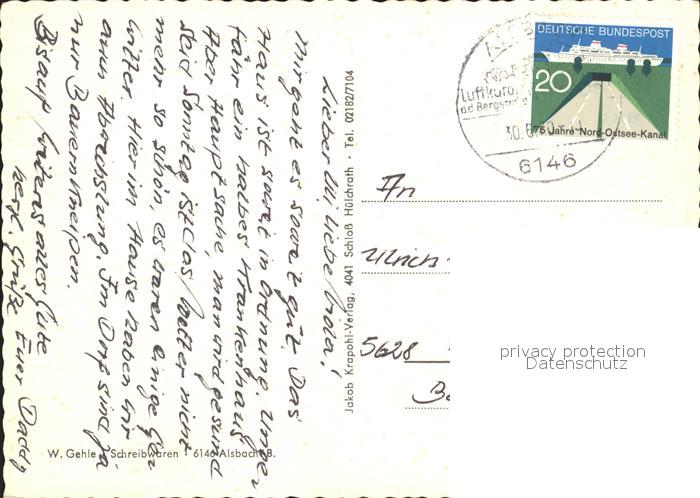 Lieber Uli, liebe Viola!
Mir geht es soweit gut. Das
Haus ist soweit in Ordnung. Ungefähr ein halbes Krankenhaus.
Aber Hauptsache, man wird gesund
Seit Sonntag ist das Wetter nicht
mehr so schön, es waren einige Gewitter. Hier im Hause haben wir
auch Abwechslung. Im Dorf sind ja
nur Bauernkneipen.
Bis auf weiteres alles Gute
herzl. Grüße Euer Daddy
W. Gehle - Schreibwaren · 6146 Alsbach/B.
Jakob Krapohl-Verlag, 4041 Schloß Hülchrath · Tel. 02182/7104
DEUTSCHE BUNDESPOST
20
75 Jahre Nord-Ostsee-Kanal
Luftkuro
a.d. Bergstr
6146
An
Ulrich
5628
privacy protection
Datenschutz